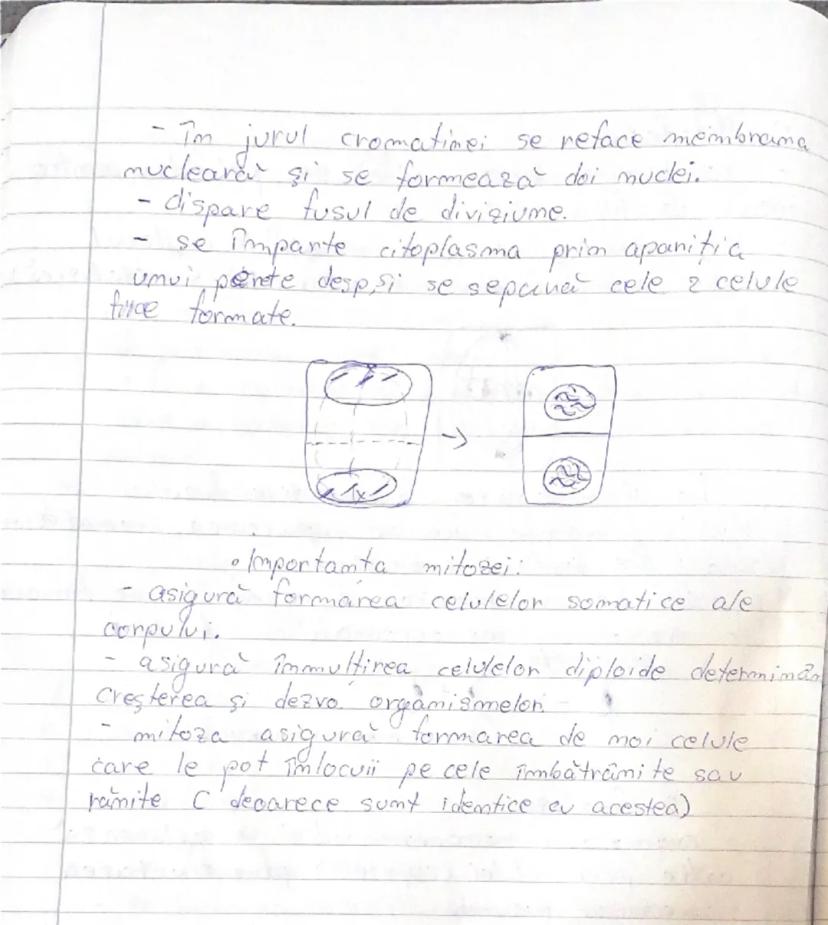 - în jurul cromatinei se reface membrana
nucleară și se formează doi nuclei.
- dispare fusul de diviziune.
- se împarte citoplasma prin apariția
unui perete desp, și se separă cele 2 celule
fiice formate.
• Importanta mitozei:
- asigură formarea celulelor somatice ale
corpului.
- asigură înmulțirea celulelor diploide determinân
creșterea și dezvo. organismelor.
- mitoza asigură formarea de noi celule
care le pot înlocuii pe cele îmbătrânite sau
rănite (deoarece sunt identice cu acestea)